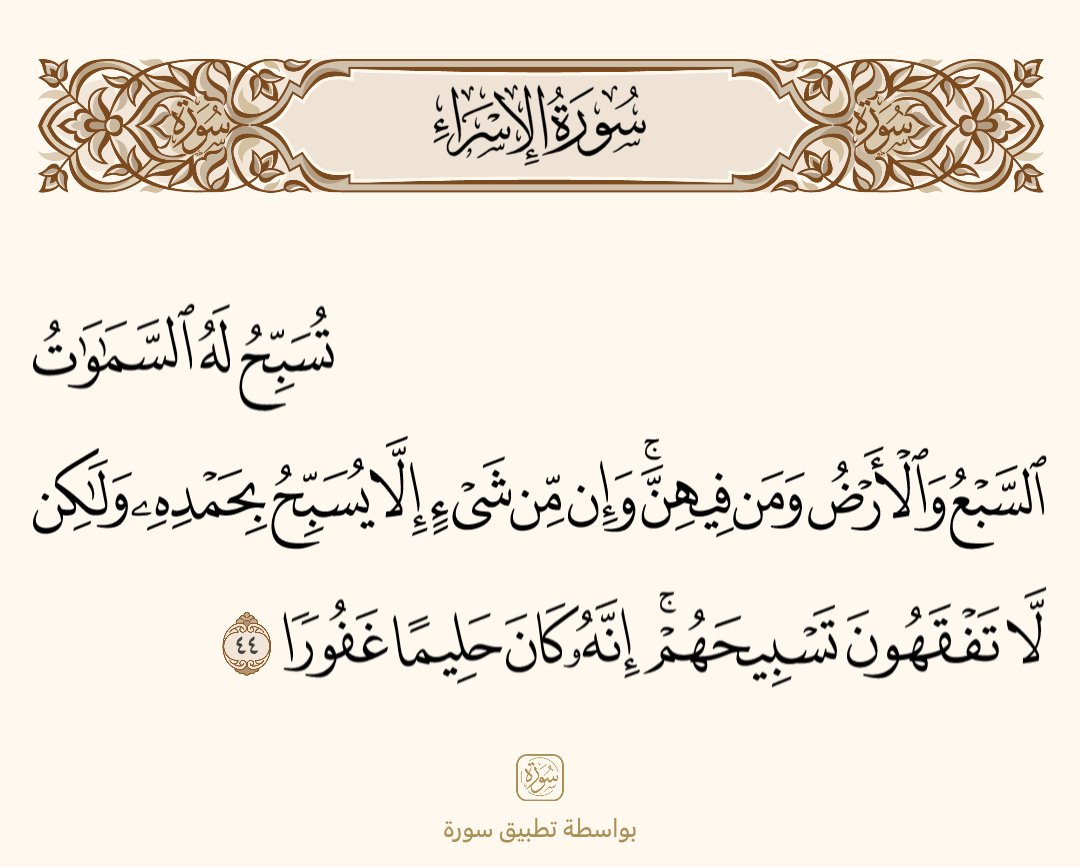 سُورَةُ الإِسْرَاءِ
سُورَة
سُورَة
تُسَبِّحُ لَهُ ٱلسَّمَٰوَٰتُ
ٱلسَّبْعُ وَٱلْأَرْضُ وَمَن فِيهِنَّۚ وَإِن مِّن شَىْءٍ إِلَّا يُسَبِّحُ بِحَمْدِهِۦ وَلَٰكِن
لَّا تَفْقَهُونَ تَسْبِيحَهُمْۚ إِنَّهُۥ كَانَ حَلِيمًا غَفُورًا ٤٤
سُورَة
بواسطة تطبيق سورة